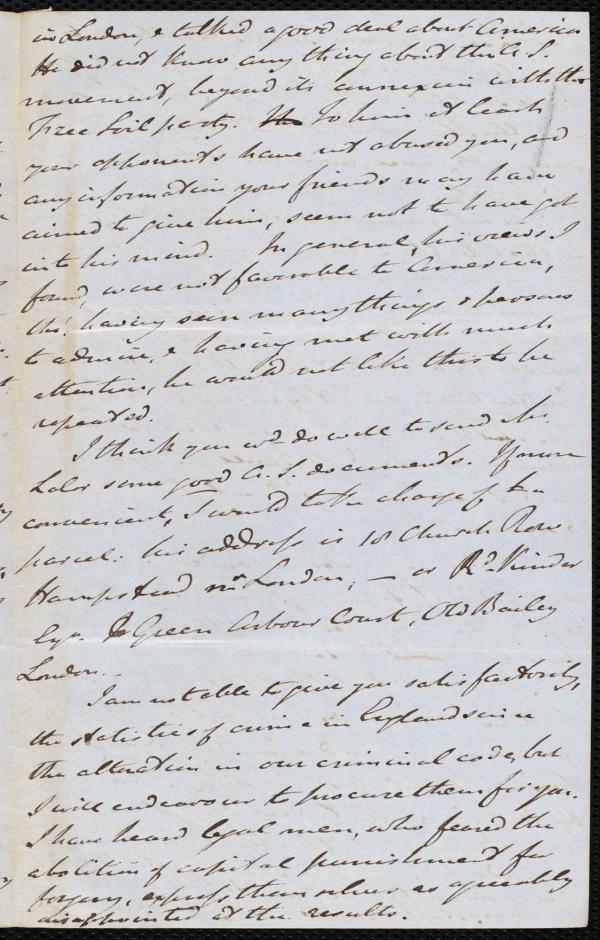 in London, & talked a good deal about America
He did not know any thing about the A. S.
movement, beyond its connexion with the
Free Soil party. To him at least
your opponents have not abused you, and
any information your friends may have
aimed to give him, seem not to have got
into his mind. In general, his views I
found, were not favorable to America,
tho' having seen many things & persons
to admire, & having met with much
attention, he would not like this to be
repeated.
I think you wd do well to send Mr.
Lalor some good A. S. documents. If more
convenient, I would take charge of the
parcel: his address is 18 Church Row
Hampstead nr London; — or Rd. Kinder
Esqr. Green Arbour Court, Old Bailey
London.
I am not able to give you satisfactorily,
the statistics of crime in England since
the alteration in our criminal code, but
I will endeavour to procure them for you.
I have heard legal men, who feared the
abolition of capital punishment for
forgery, express themselves as agreeably
disappointed at the results.